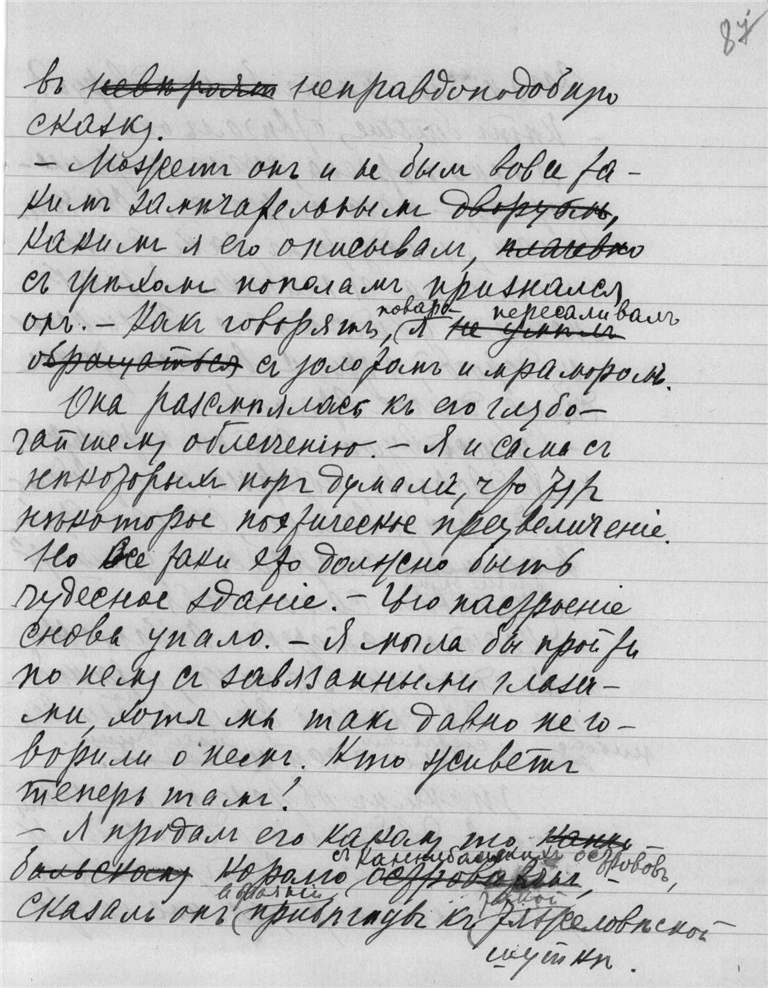 87
въ невѣроят неправдоподобную
сказку.
— Можетъ онъ и не былъ вовсе та-
кимъ замѣчательнымъ дворцомъ,
какимъ я его описывалъ,
съ грѣхомъ пополамъ признался
онъ. — Какъ говорятъ повара, я пересаливалъ
не умѣлъ
обращаться съ золотомъ и мраморомъ.
Она разсмѣялась къ его глубо-
чайшему облегченію. — Я и сама съ
нѣкоторыхъ поръ думала, что тутъ
нѣкоторое поэтическое преувеличеніе.
Но все таки это должно быть
чудесное зданіе. — Его настроеніе
снова упало. — Я могла бы пройти
по нему съ завязанными глаза-
ми, хотя мы такъ давно не го-
ворили о немъ. Кто живетъ
теперь тамъ?
— Я продалъ его какому то канни-
бальскому королю съ Каннибальскихъ острововъ,
сказалъ онъ прибѣгнувъ къ тяжеловѣсной
шуткѣ.